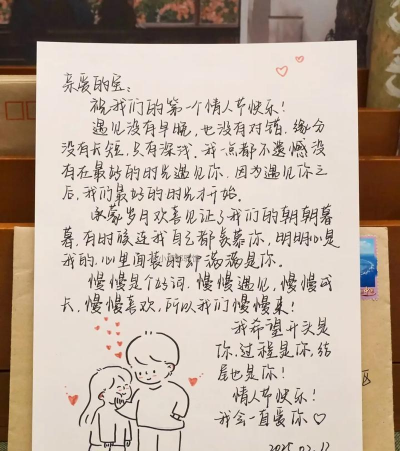 亲爱的宝:
祝我们的第一个情人节快乐!
遇见没有早晚,也没有对错.缘分
没有长短,只有深浅.我一点都不遗憾没
有在最好的时光遇见你.因为遇见你之
后,我们最好的时光才开始.
承蒙岁月欢喜见证了我们的朝朝暮
暮,有时候连我自己都羡慕你,明明心是
我的,心里面装的却满满是你.
慢慢是个好词.慢慢遇见,慢慢成
长,慢慢喜欢,所以我们慢慢来!
我希望开头是
你,过程是你,结
尾也是你!
情人节快乐!
我会一直爱你♡